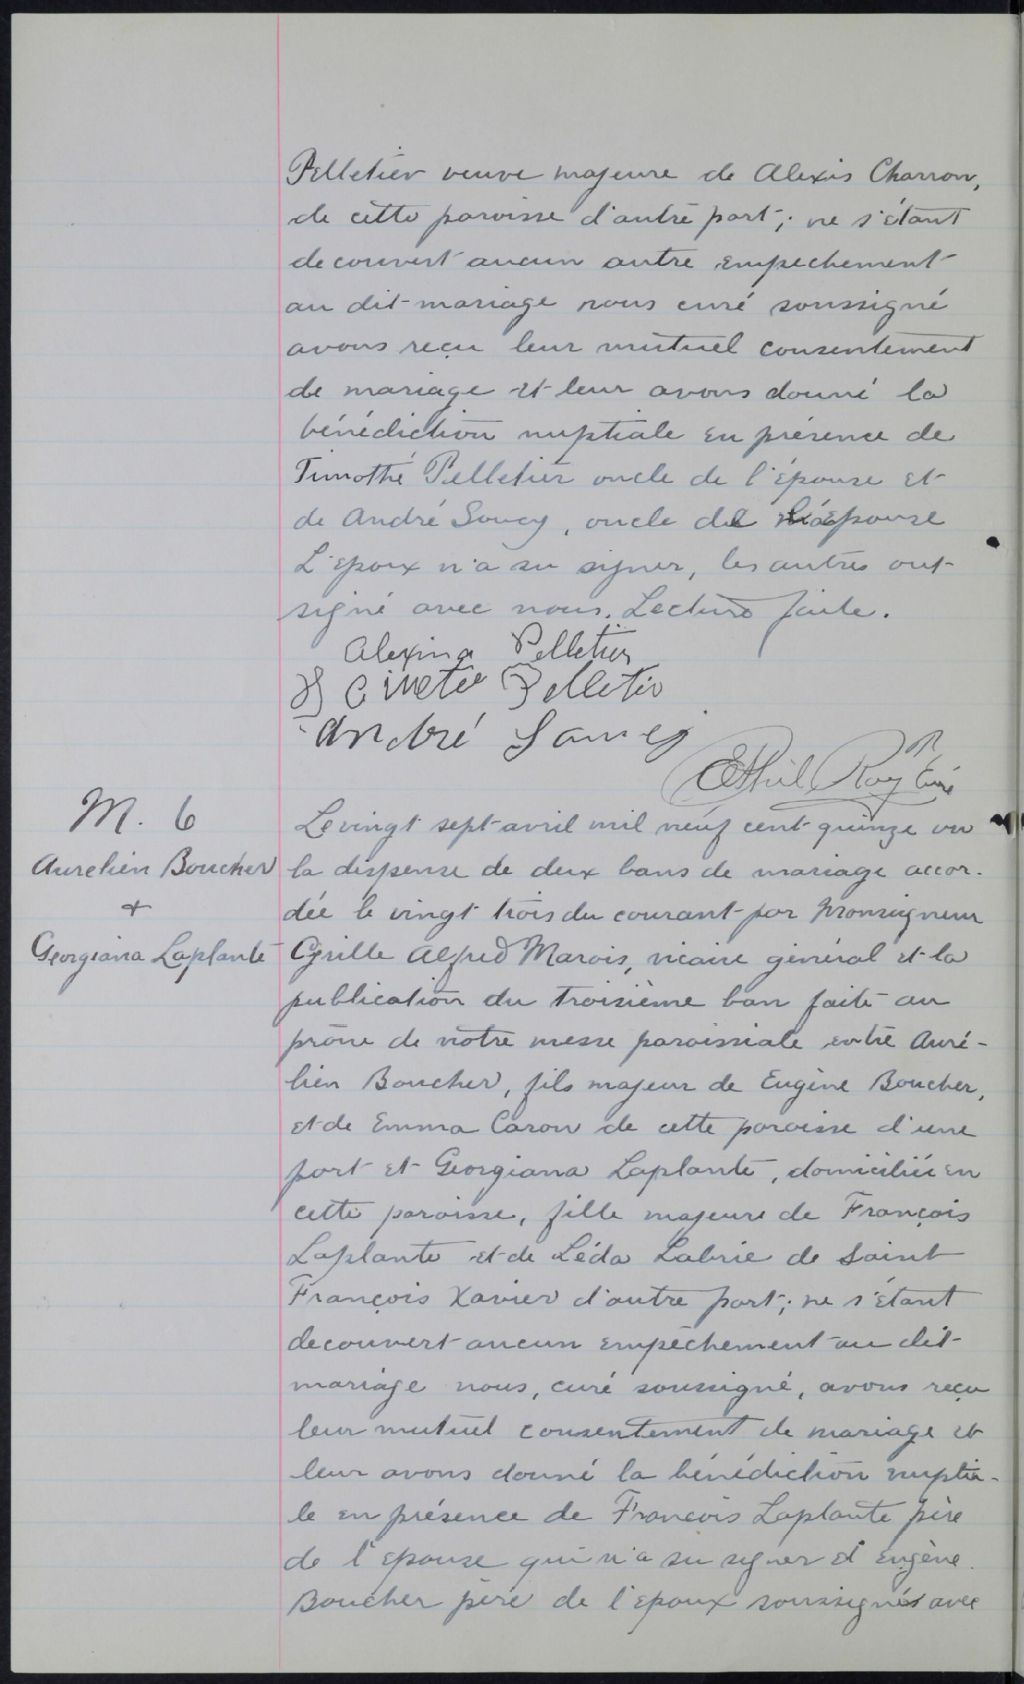 Pelletier veuve majeure de Alexis Charron,
de cette paroisse d'autre part; ne s'étant
decouvert aucun autre empechement
au dit mariage nous curé soussigné
avons reçu leur mutuel consentement
de mariage et leur avons donné la
bénédiction nuptiale en présence de
Timothé Pelletier oncle de l'épouse et
de André Soucy, oncle de l'épouse
L'epoux n'a su signer, les autres ont
signé avec nous. Lecture faite.
Alexina Pelletier
Pelletier
André
Roy Ptre Curé
M. 6
Aurelien Boucher
+
Georgiana Laplante
Le vingt sept avril mil neuf cent quinze vu
la dispense de deux bans de mariage accor-
dée le vingt trois du courant par Monseigneur
Cyrille Alfred Marois, vicaire général et la
publication du troisième ban faite au
prône de notre messe paroissiale entre Auré-
lien Boucher, fils majeur de Eugène Boucher,
et de Emma Caron de cette paroisse d'une
part et Georgiana Laplante, domiciliée en
cette paroisse, fille majeure de François
Laplante et de Léda Labrie de Saint
François Xavier d'autre part; ne s'étant
decouvert aucun empêchement au dit
mariage nous, curé soussigné, avons reçu
leur mutuel consentement de mariage et
leur avons donné la bénédiction nuptia-
le en présence de François Laplante père
de l'epouse qui n'a su signer et Eugène
Boucher père de l'epoux soussignés avec